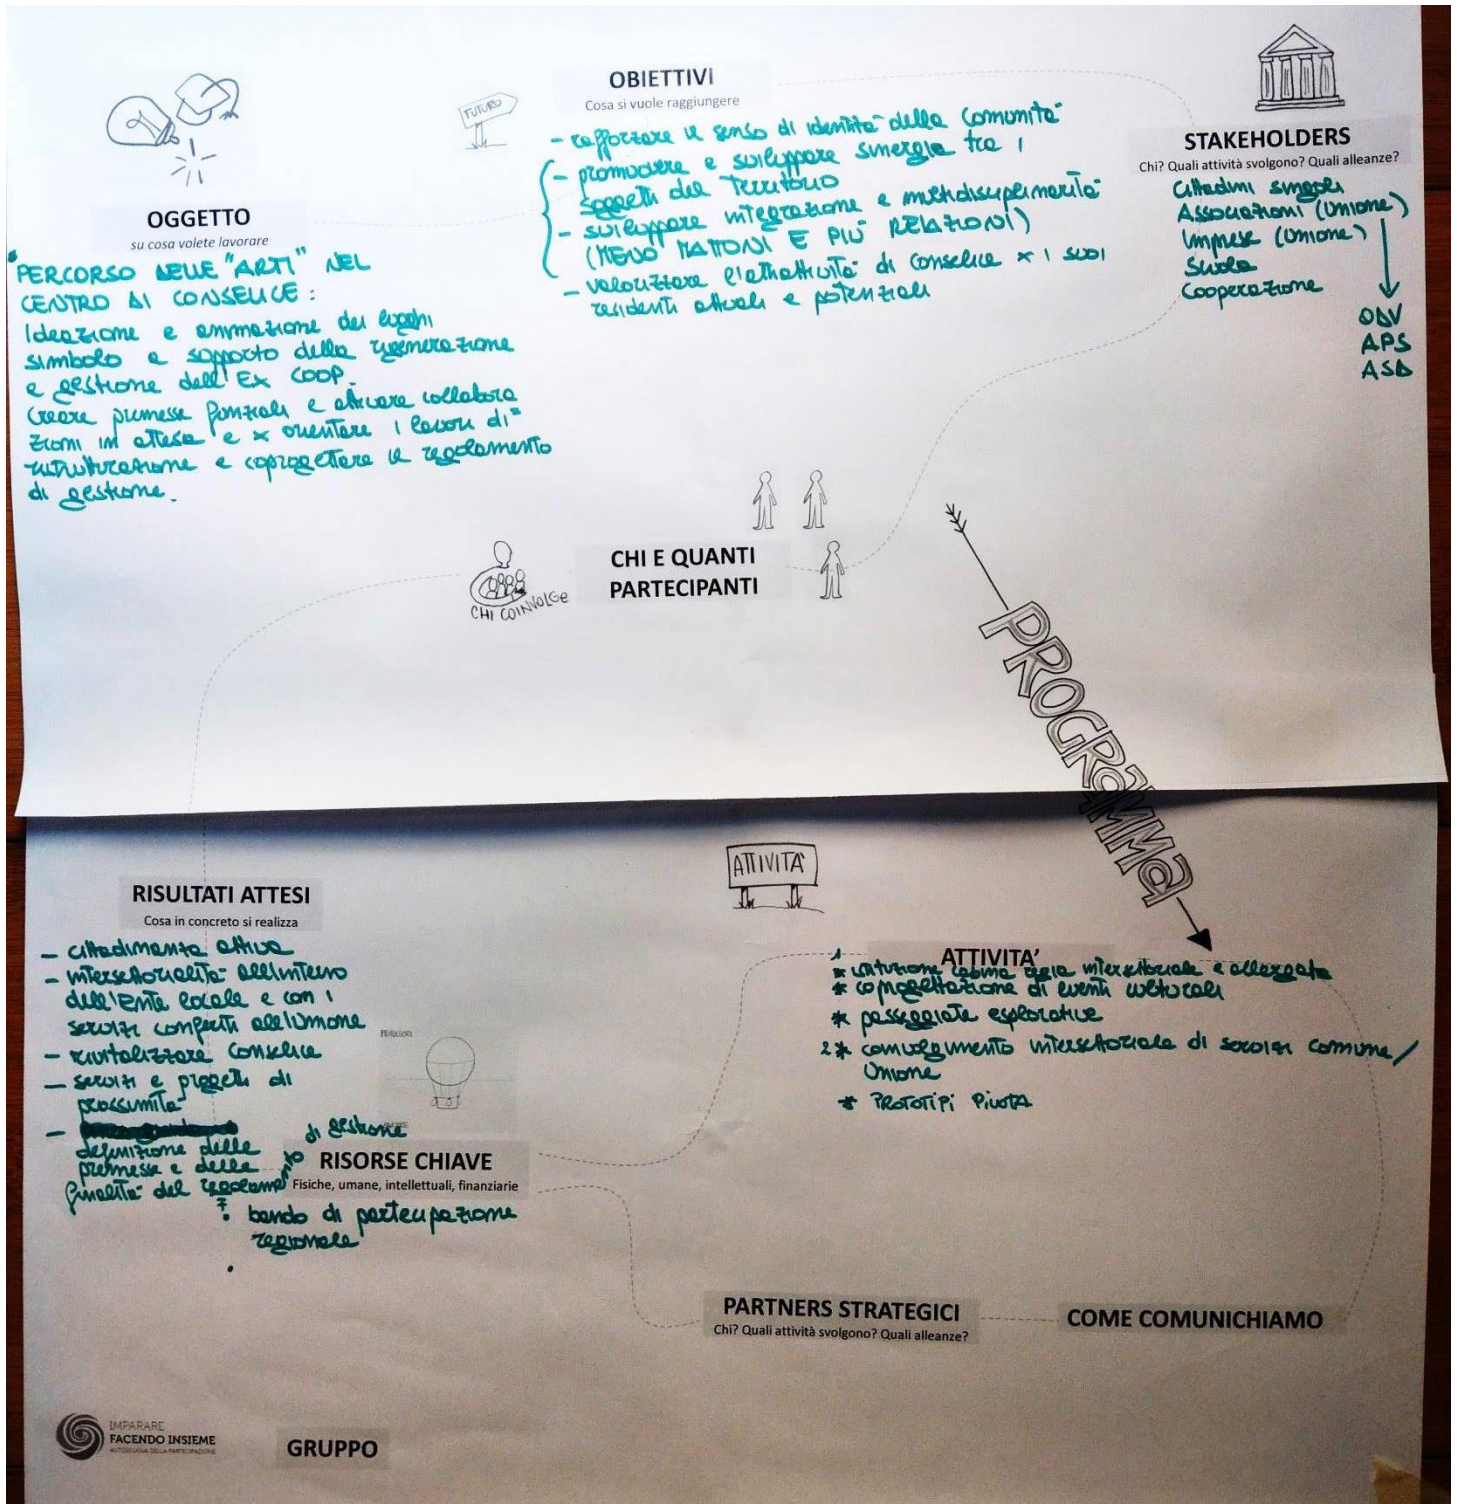 OGGETTO
su cosa volete lavorare
"PERCORSO DELLE "ARTI" NEL
CENTRO DI CONSELICE:
Ideazione e animazione dei luoghi
simbolo a supporto della rigenerazione
e gestione dell'EX COOP.
Creare premesse funzionali e attivare collabora
zioni in attesa e x orientare i lavori di"
ristrutturazione e coprogettare il regolamento
di gestione.
FUTURO
OBIETTIVI
Cosa si vuole raggiungere
- rafforzare il senso di identità della comunità
- promuovere e sviluppare sinergia tra i
soggetti del Territorio
- sviluppare integrazione e multidisciplinarità
(MENO MATTONI E PIÙ RELAZIONI)
- valorizzare l'attrattività di Conselice x i suoi
residenti attuali e potenziali
STAKEHOLDERS
Chi? Quali attività svolgono? Quali alleanze?
Cittadini singoli
Associazioni (Unione)
Imprese (Unione)
Scuola
Cooperazione
ODV
APS
ASD
CHI COINVOLGe
CHI E QUANTI
PARTECIPANTI
PROGRAMMA
RISULTATI ATTESI
Cosa in concreto si realizza
- cittadinanza attiva
- intersettorialità all'interno
dell'Ente locale e con i
servizi conferiti all'Unione
- rivitalizzare Conselice
- servizi e progetti di
prossimità
-
definizione delle
premesse e delle
finalità del regolamento
di gestione
ATTIVITÀ
ATTIVITA'
1
* istituzione cabina regia intersettoriale e allargata
* coprogettazione di eventi culturali
* passeggiate esplorative
2 * coinvolgimento intersettoriale di servizi comune/
Unione
* PROTOTIPI PILOTA
RISORSE CHIAVE
Fisiche, umane, intellettuali, finanziarie
bando di partecipazione
regionale
PARTNERS STRATEGICI
Chi? Quali attività svolgono? Quali alleanze?
COME COMUNICHIAMO
IMPARARE
FACENDO INSIEME
AUTOSCUOLA DELLA PARTECIPAZIONE
GRUPPO